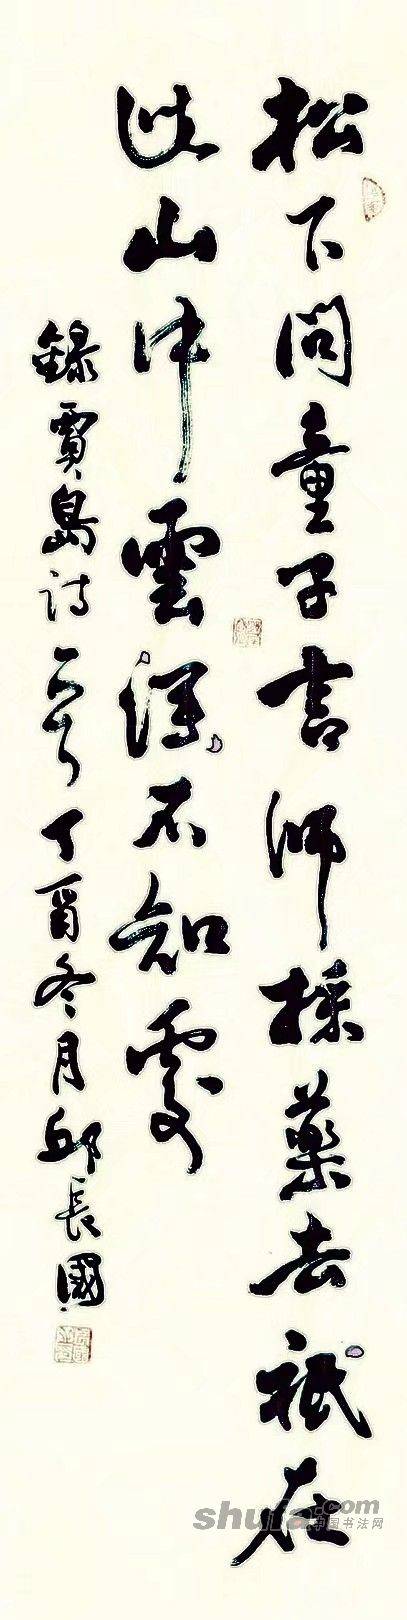 松下問童子言師採藥去祇在
此山中雲深不知處
錄賈島詩一首丁酉冬月邱長國
shufa.com
中国书法网